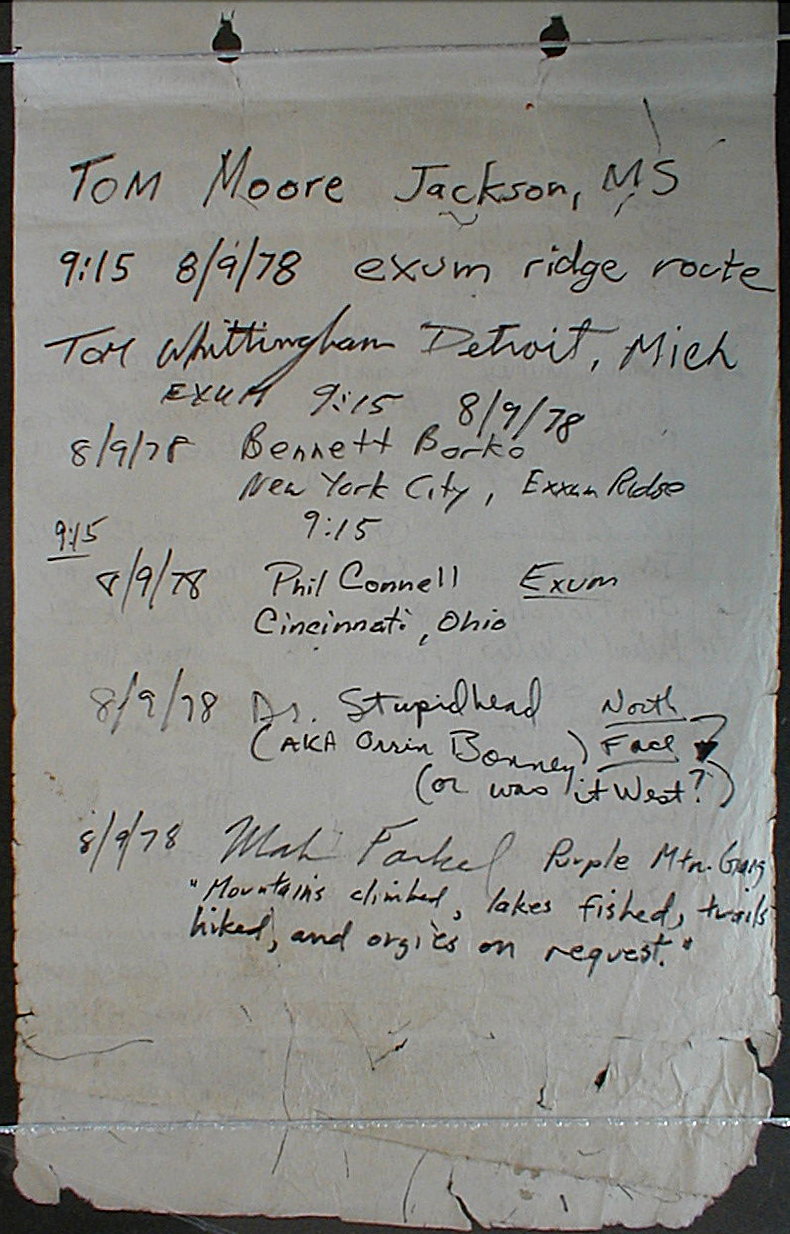 TOM Moore Jackson, MS
9:15 8/9/78 exum ridge route
Tom Whittingham Detroit, Mich
EXUM 9:15 8/9/78
8/9/78 Bennett Borko
New York City, Exxum Ridge
9:15
9:15
8/9/78 Phil Connell Exum
Cincinnati, Ohio
8/9/78 Dr. Stupidhead North
(AKA Orrin Bonney) Face
(or was it West?)
8/9/78 Purple Mtn. Gang
"Mountains climbed, lakes fished, trails
hiked, and orgies on request."